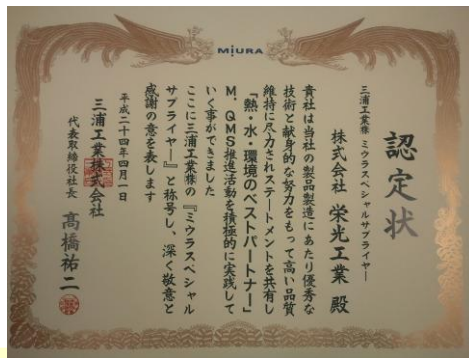 MIURA
認定状
三浦工業㈱ ミウラスペシャルサプライヤー
株式会社 栄光工業 殿
貴社は当社の製品製造にあたり優秀な
技術と献身的な努力をもって高い品質
維持に尽力されステートメントを共有し
「熱・水・環境のベストパートナー」
M、QMS推進活動を積極的に実践して
いく事ができました
ここに三浦工業㈱の『ミウラスペシャル
サプライヤー』と称号し、深く敬意と
感謝の意を表します
平成二十四年四月一日
三浦工業株式会社
代表取締役社長 髙橋祐二